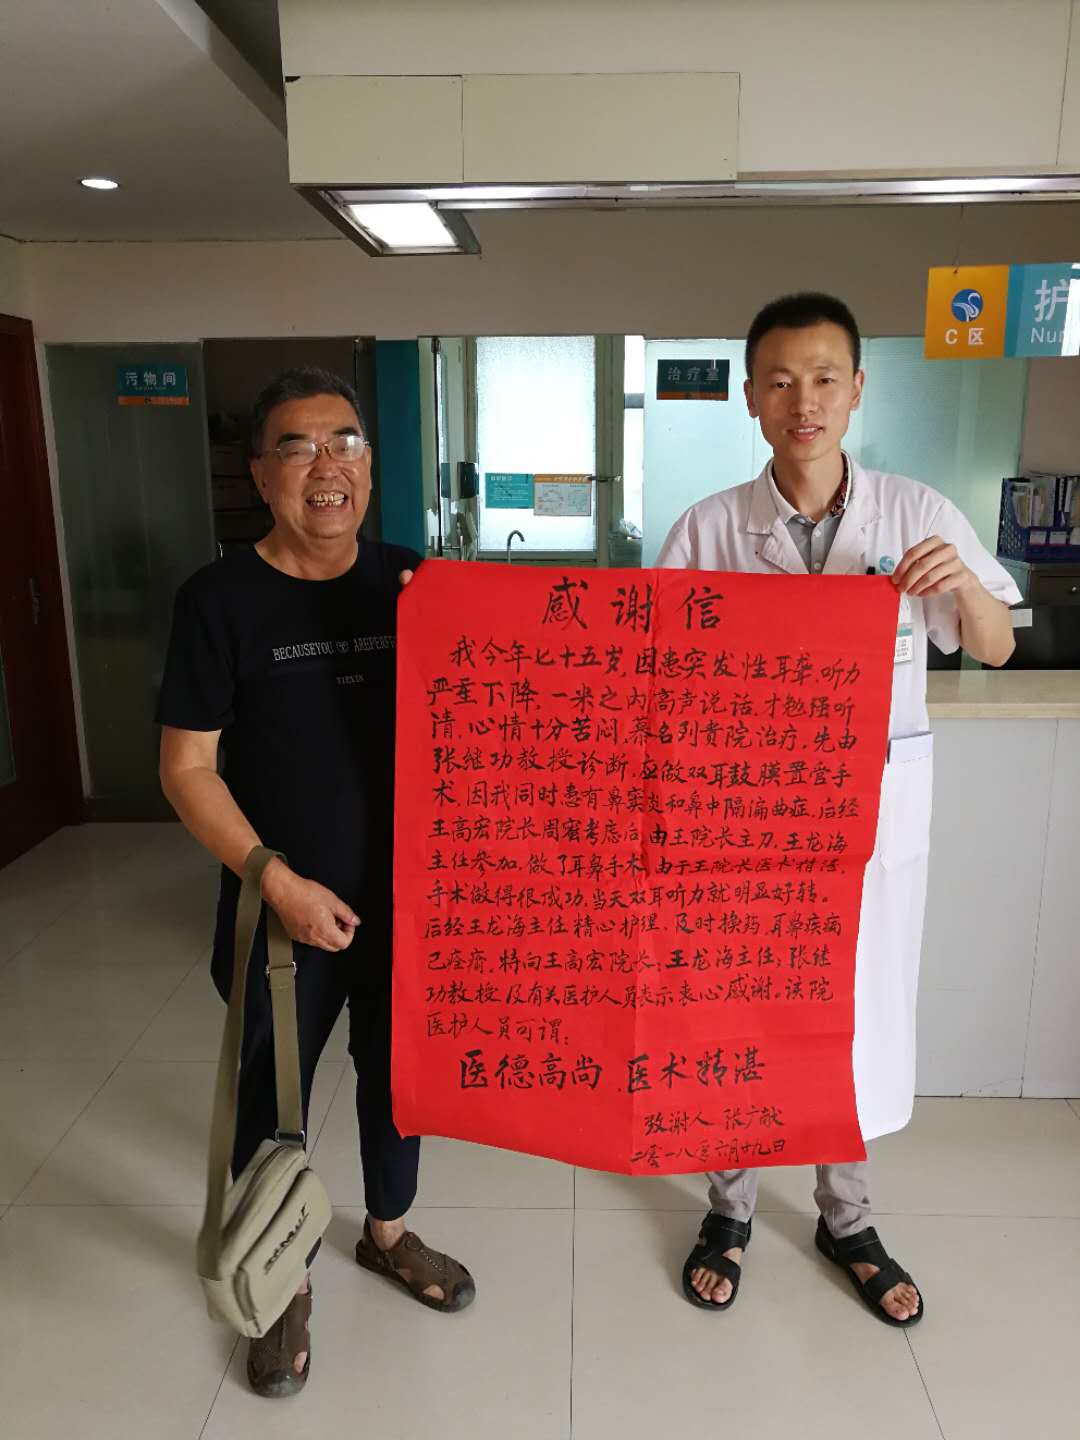 污物间
治疗室
C区
护
Nur
BECAUSEYOU AREPERFE
YIEXIN
感谢信
我今年七十五岁,因患突发性耳聋,听力
严重下降,一米之内高声说话,才勉强听
清,心情十分苦闷,慕名到贵院治疗,先由
张继功教授诊断,应做双耳鼓膜置管手
术,因我同时患有鼻窦炎和鼻中隔偏曲症,后经
王高宏院长周密考虑后,由王院长主刀,王龙海
主任参加,做了耳鼻手术,由于王院长医术精湛,
手术做得很成功,当天双耳听力就明显好转。
后经王龙海主任精心护理,及时换药,耳鼻疾病
已痊瘉,特向王高宏院长,王龙海主任,张继
功教授及有关医护人员表示衷心感谢。该院
医护人员可谓:
医德高尚,医术精湛
致谢人 张广献
二零一八年六月廿九日